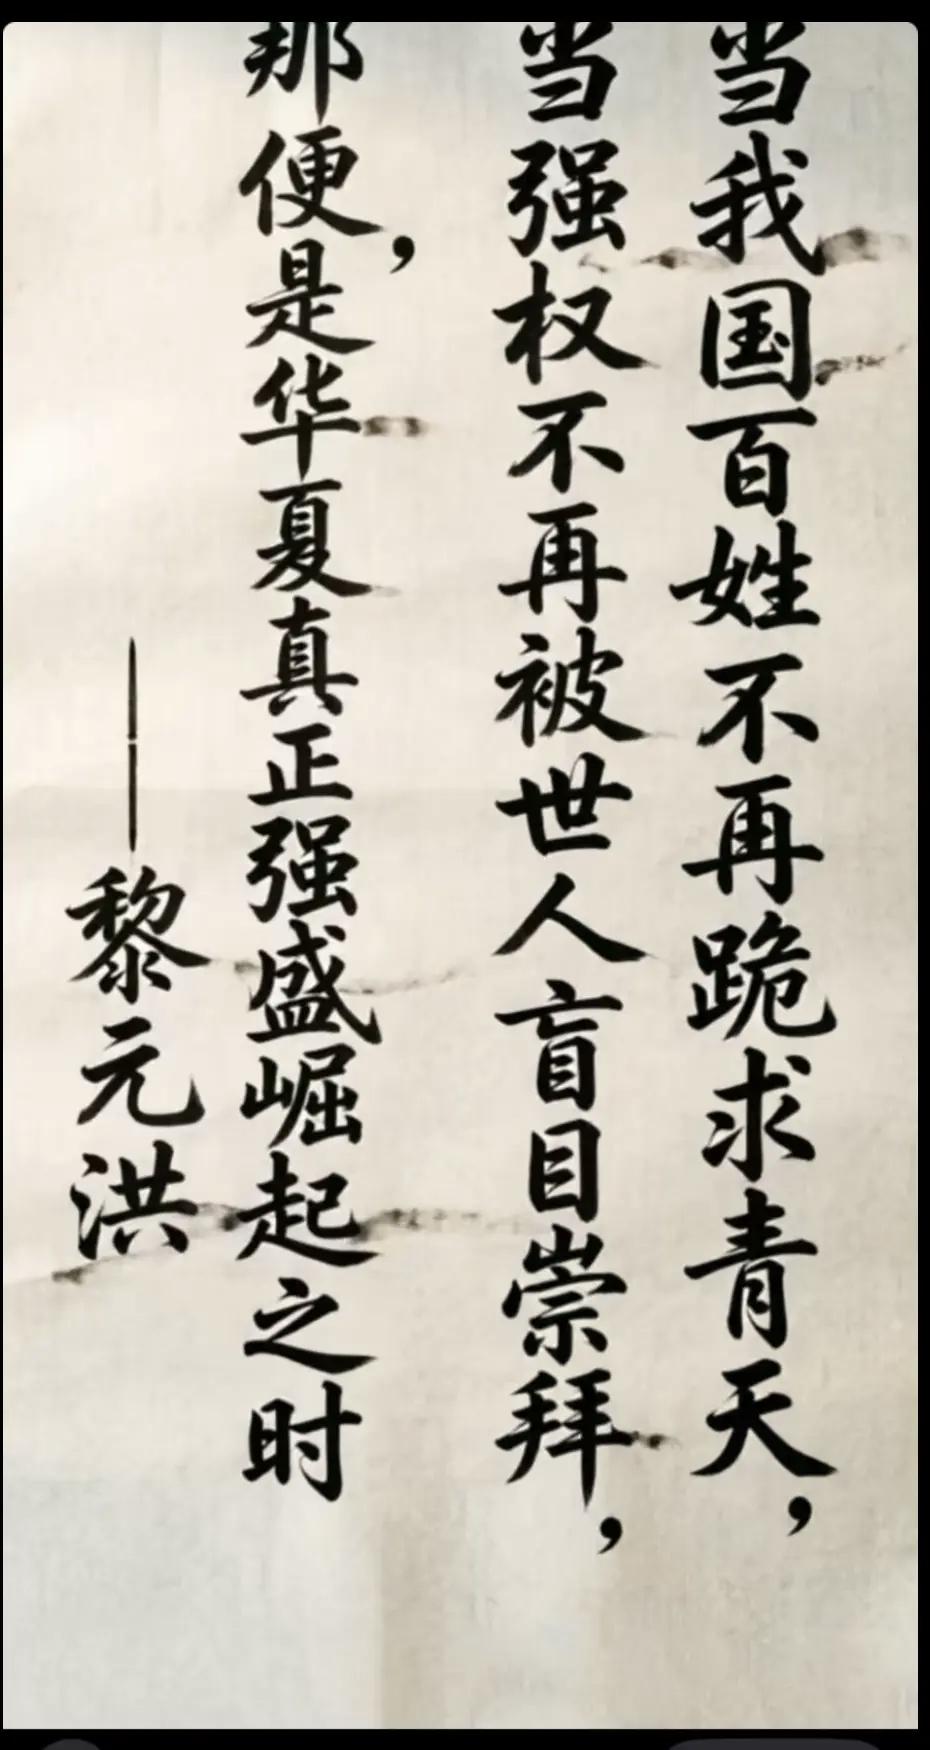 当我国百姓不再跪求青天，
当强权不再被世人盲目崇拜，
那便，是华夏真正强盛崛起之时
——黎元洪